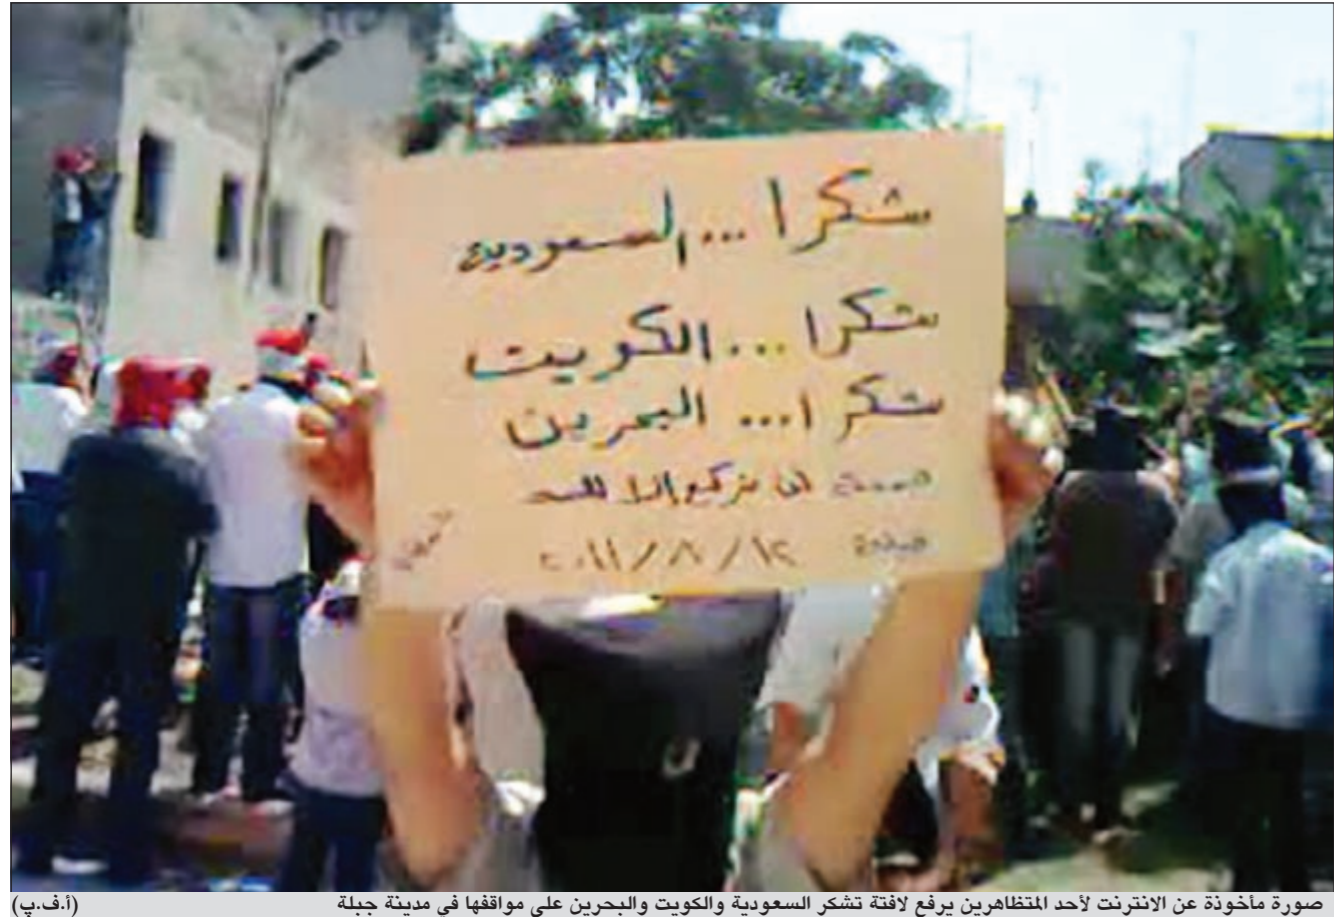 شكرا ... السعودية
شكرا ... الكويت
شكرا ... البحرين
جمعة لن نركع إلا لله
جبلة ٢٠١١/٨/١٢
صورة مأخوذة عن الانترنت لأحد المتظاهرين يرفع لافتة تشكر السعودية والكويت والبحرين على مواقفها في مدينة جبلة
(أ.ف.پ)